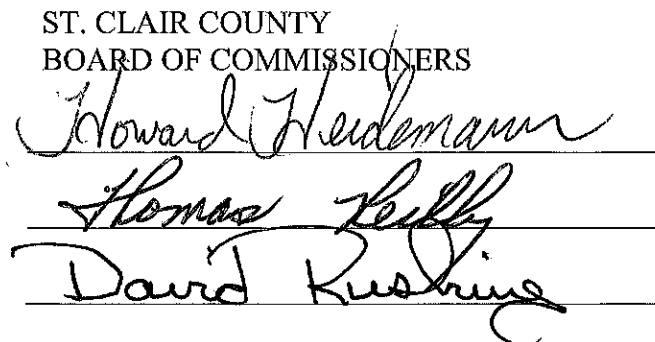 ST. CLAIR COUNTY
BOARD OF COMMISSIONERS
Howard Heidemann
Thomas Reilly
David Rushing